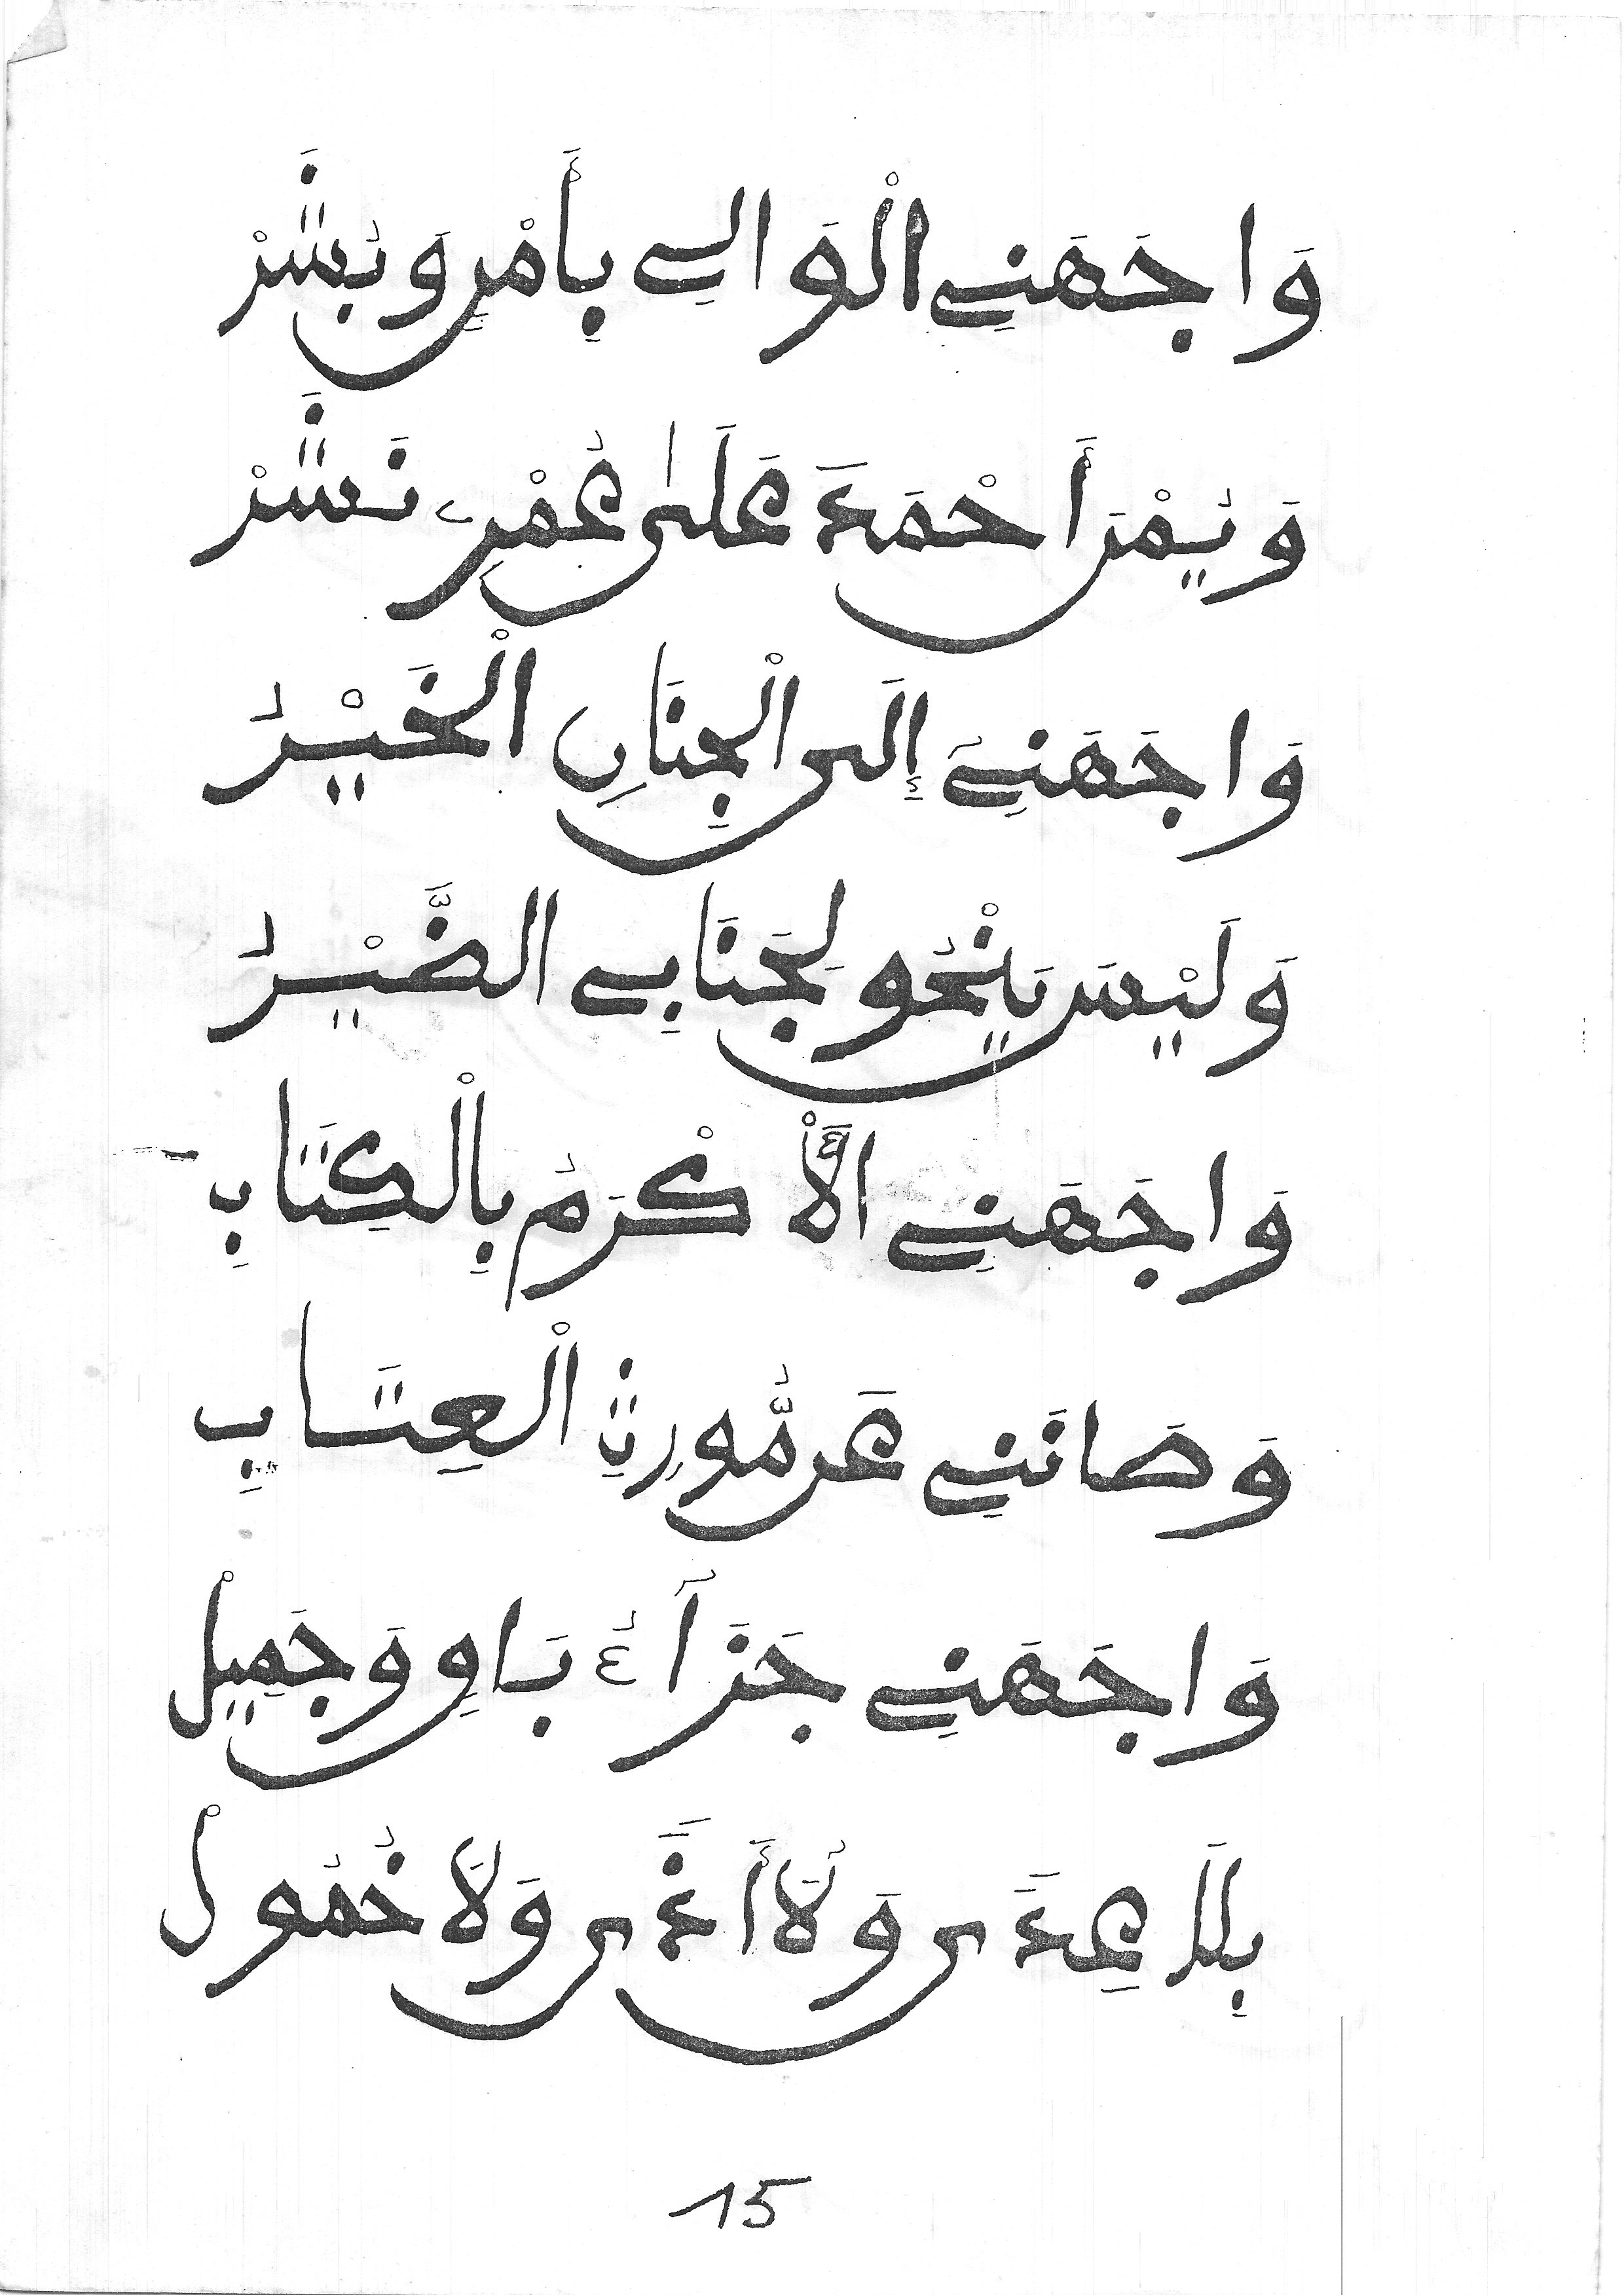 وَاجَهَنِي الْوَالِي بِأَمْنٍ وَبُشَرْ
وَيُمْنَ أَحْمَدَ عَلَى عُمْرِي نَشَرْ
وَاجَهَنِيَ إِلَى الْجِنَانِ الْخَيْرُ
وَلَيْسَ يَنْحُو لِجَنَابِي الضَّيْرُ
وَاجَهَنِي الْأَكْرَمُ بِالْكِتَابِ
وَصَانَنِي عَن مُّورِثِ الْعِتَابِ
وَاجَهَنِي جَزَآءُ بَاقٍ وَجَمِيلْ
بِلَا عِدًى وَلَا أَذًى وَلَا خُمُولْ
15